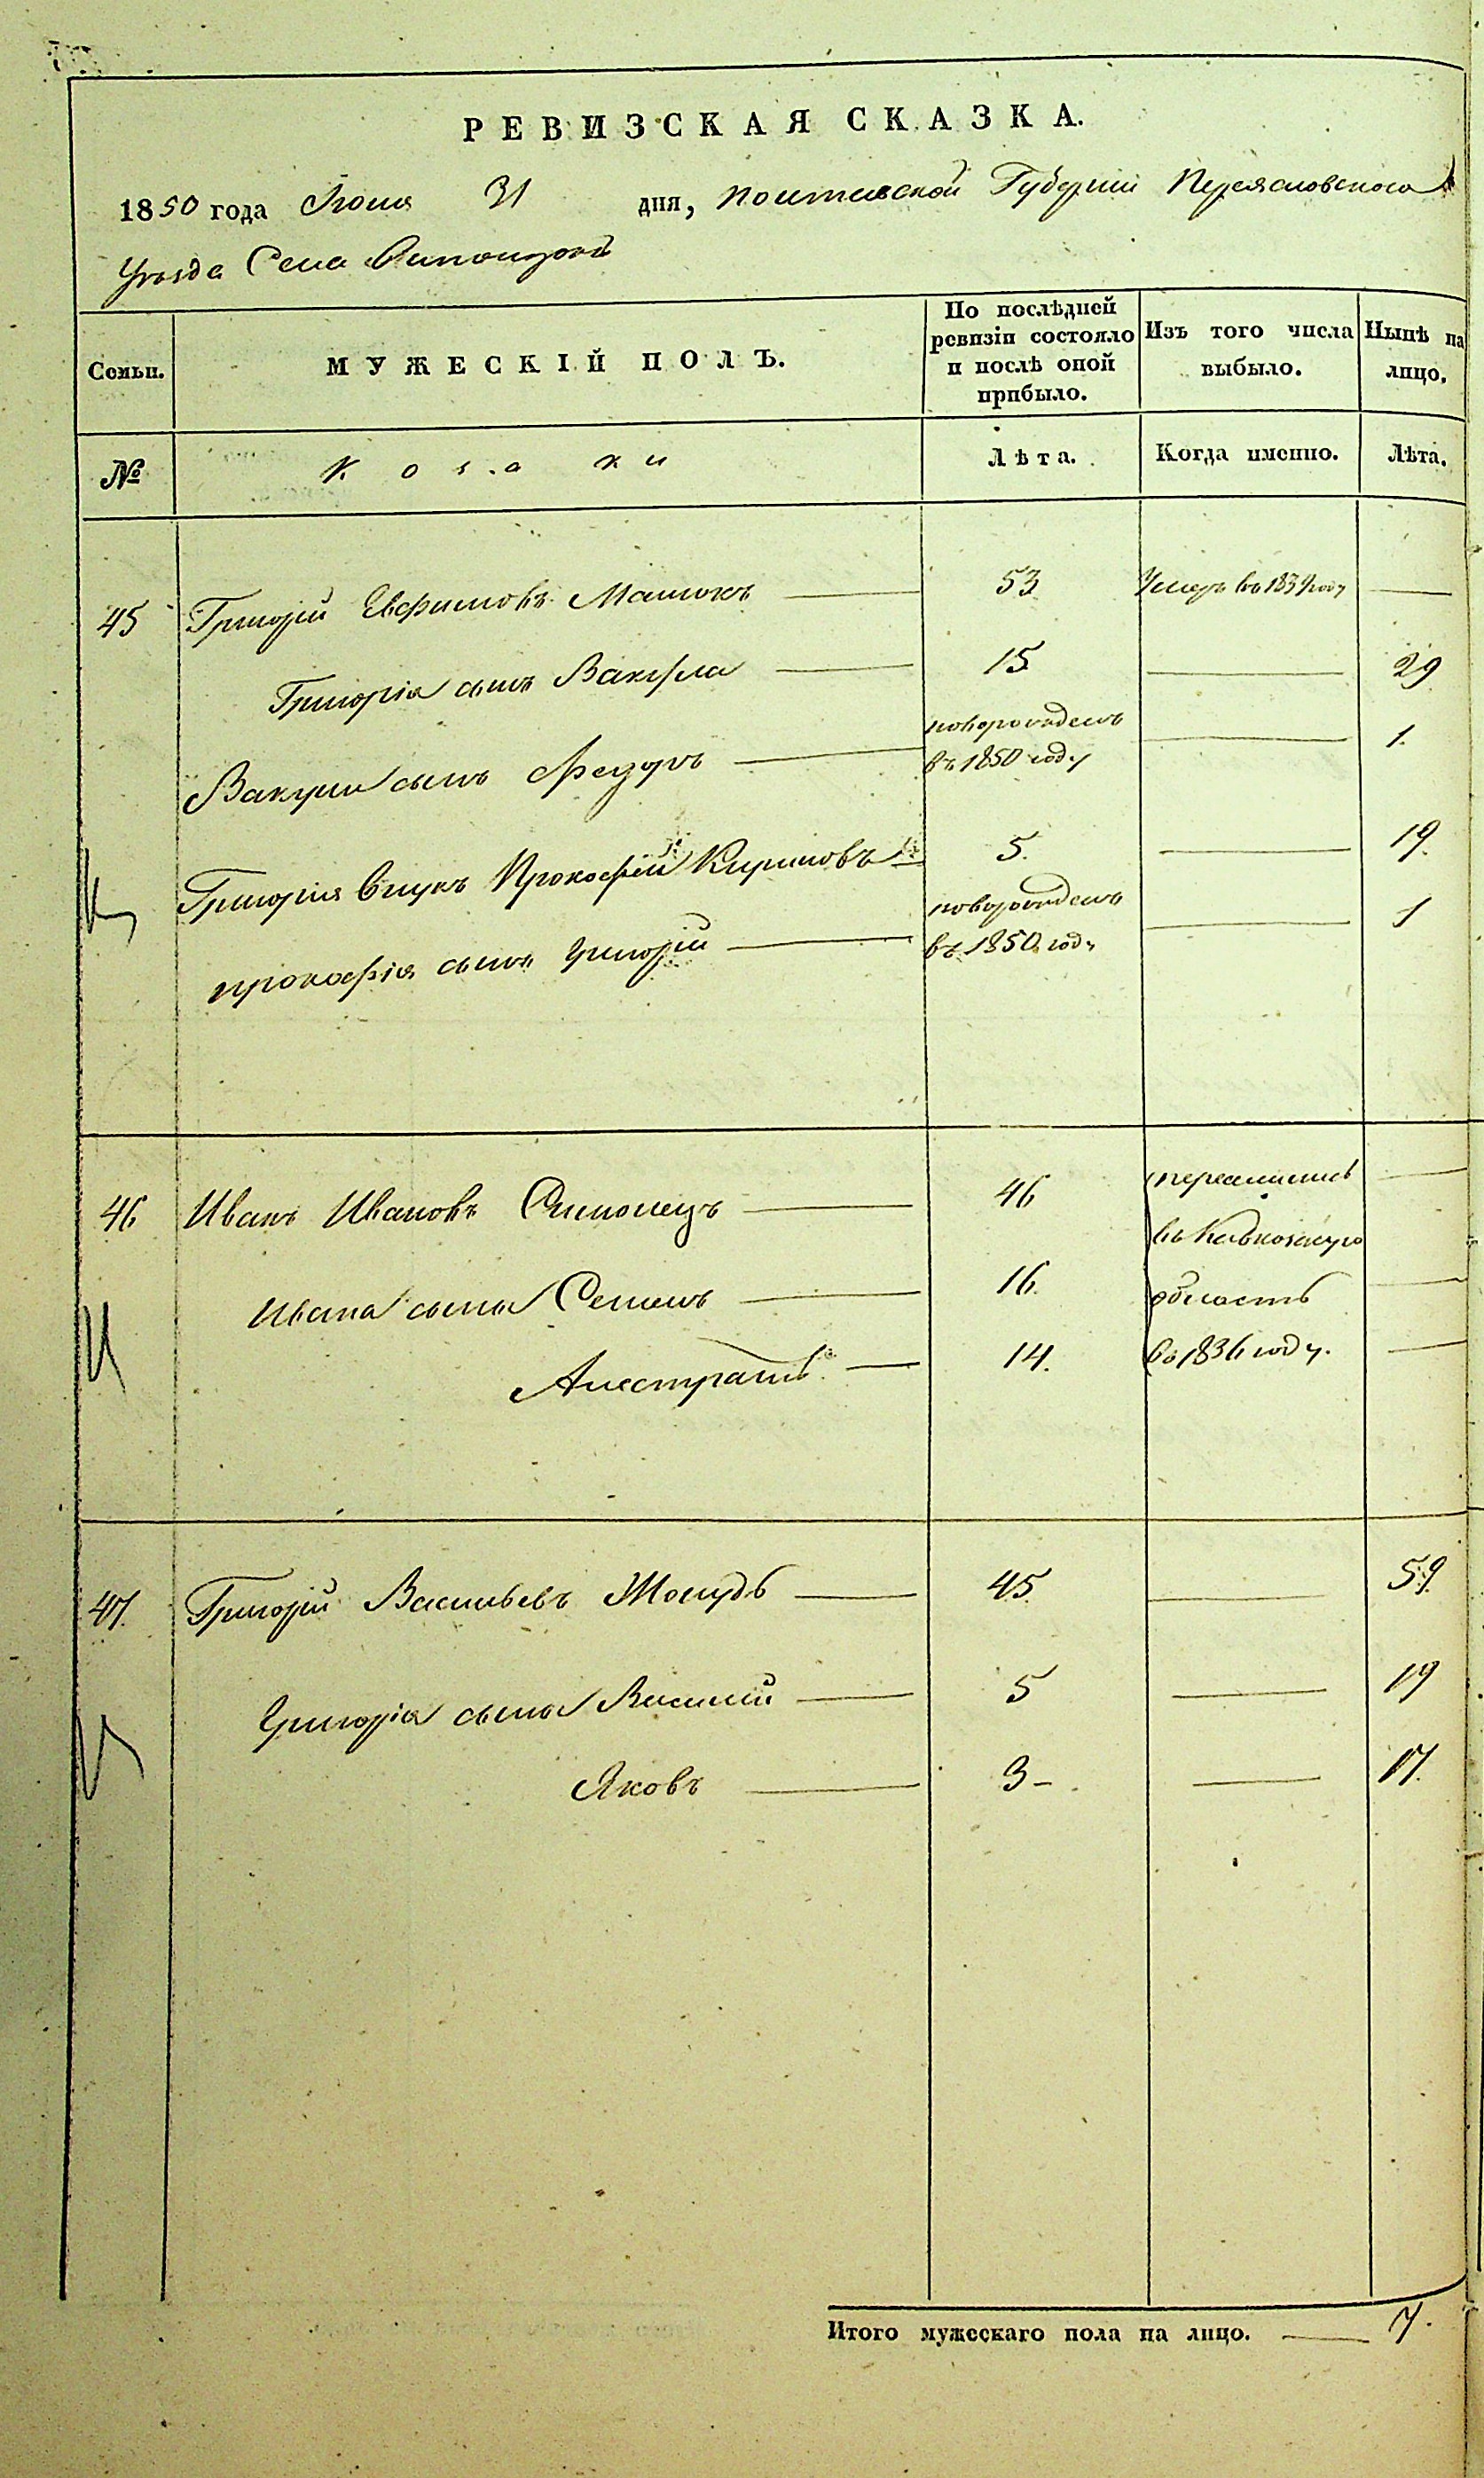 РЕВИЗСКАЯ СКАЗКА.
1850 года Іюля 31 дня, Полтавской Губерніи Переясловского
Уѣзда Села
Семьи. МУЖЕСКІЙ ПОЛЪ. По послѣдней ревизіи состояло и послѣ оной прибыло. Изъ того числа выбыло. Нынѣ на лицо.
№ Козаки Лѣта. Когда именно. Лѣта.
45 Григорій Евфимовъ 53 Умеръ въ 1839 году —
Григорія сынъ Вакула — 15 — 29
Вакулы сынъ Федоръ — новорожденъ въ 1850 году — 1.
Григорія внукъ Прокофій Кириловъ — 5. — 19.
Прокофія сынъ Григорій — новорожденъ въ 1850 году — 1
46 Иванъ Ивановъ — 46 переселились —
въ Кавказскую
Ивана сыны Семенъ — 16. область —
— 14. въ 1836 году. —
47. Григорій Васильевъ — 45. — 59.
Григорія сыны Василий — 5 — 19
Яковъ — 3 — 17.
Итого мужескаго пола на лицо. — 7.